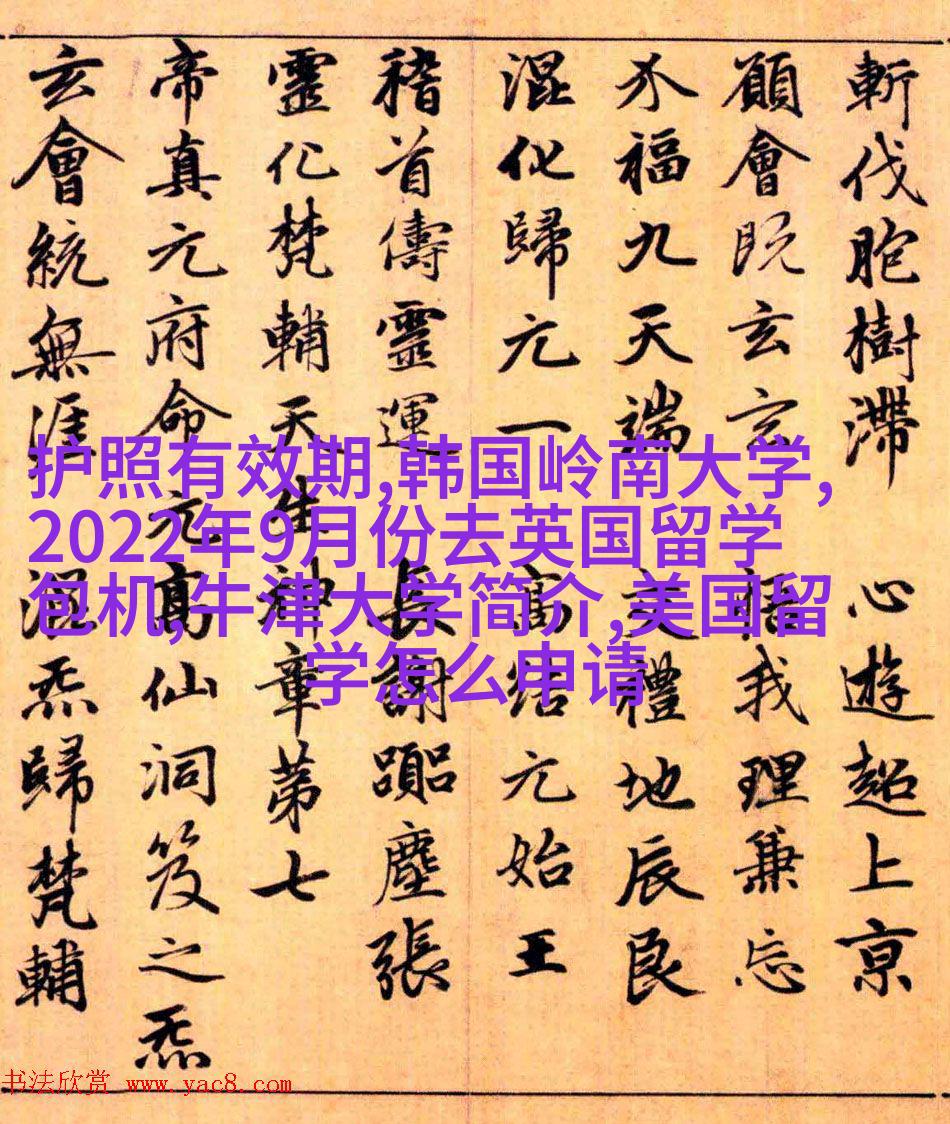 斬伐胞樹滯 心遊超上京
願會既玄玄 悟我理兼忘
介福九天端 交禮地辰良
混化歸元一 高結元始王
稽首儔靈運 長謝躡塵張
靈化梵輔天生神章第七
帝真元府命元高仙洞笈之炁
玄會統無涯混炁歸梵輔
护照有效期,韩国岭南大学,
2022年9月份去英国留学
包机,牛津大学简介,美国留
学怎么申请
书法欣赏 www.yac8.com